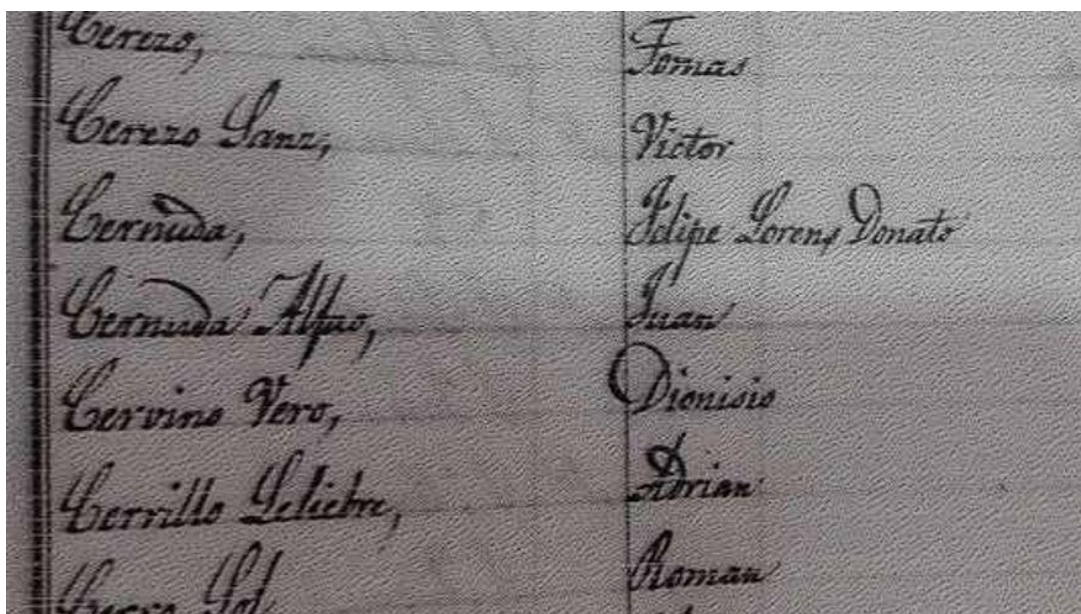 Cerezo, Tomas
Cerezo Sanz, Victor
Cernuda, Felipe Lorens Donato
Cernuda Juan
Cervino Vero, Dionisio
Cerrillo Adrian
Cerro Sol Roman